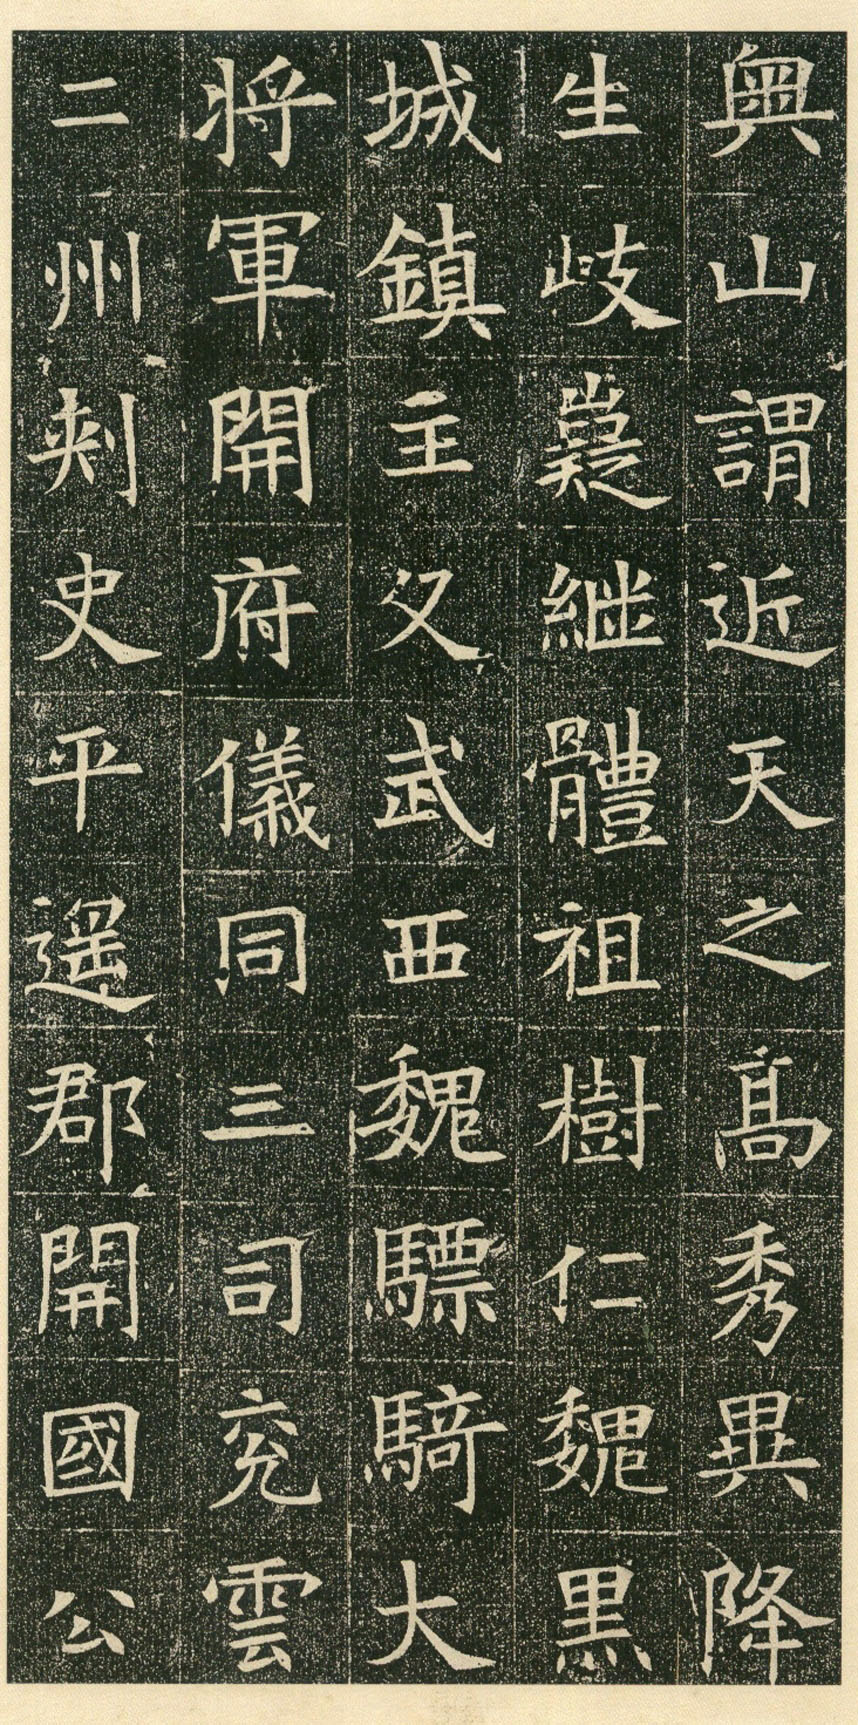 奧山謂近天之髙秀異降
生歧嶷繼體祖樹仁魏黒
城鎮主父武西魏驃騎大
将軍開府儀同三司兖雲
二州刺史平遥郡開國公